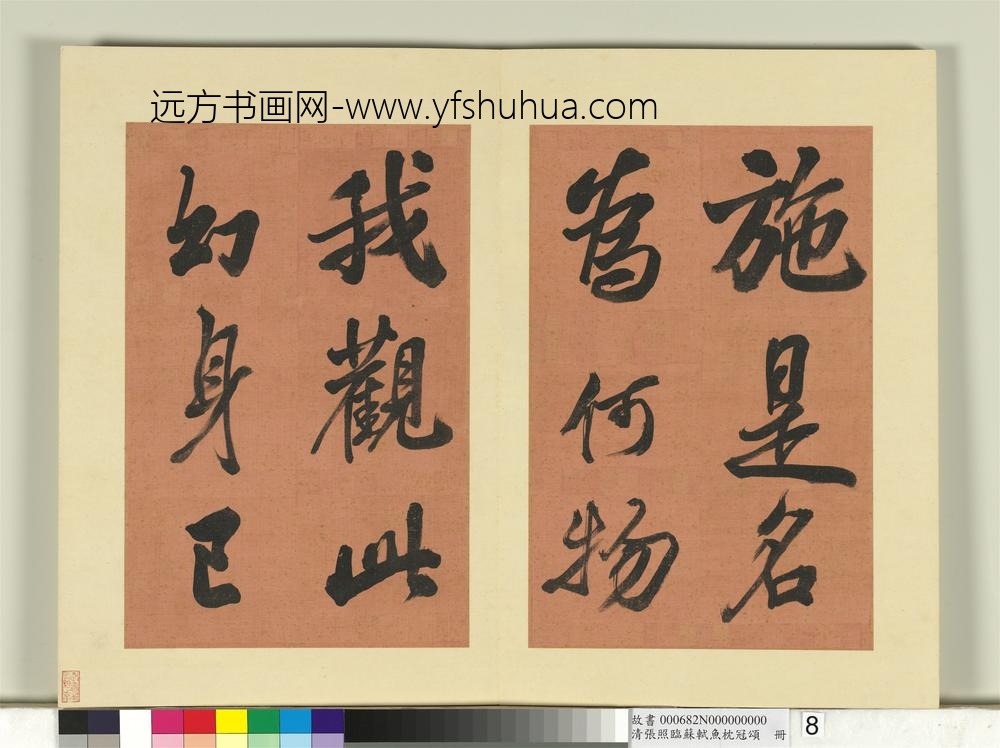 远方书画网-www.yfshuhua.com
施是名
為何物
我觀此
幻身已
故書 000682N000000000
清張照臨蘇軾魚枕冠頌 冊
8